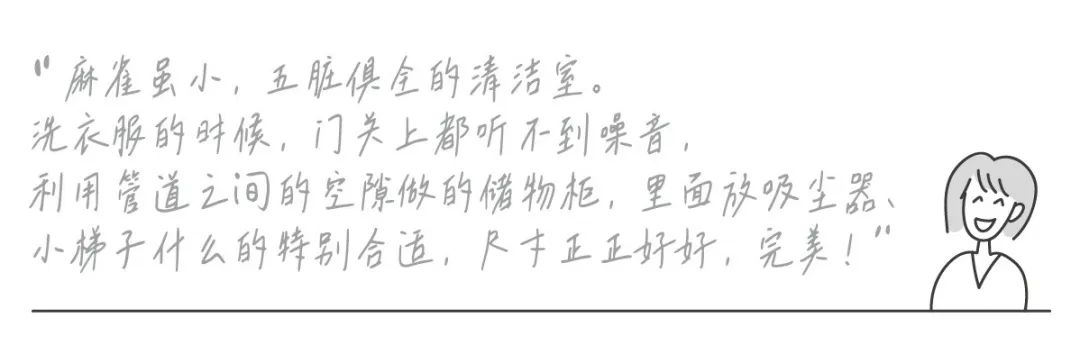 “麻雀虽小，五脏俱全的清洁室。
洗衣服的时候，门关上都听不到噪音，
利用管道之间的空隙做的储物柜，里面放吸尘器、
小梯子什么的特别合适，尺寸正正好好，完美！”